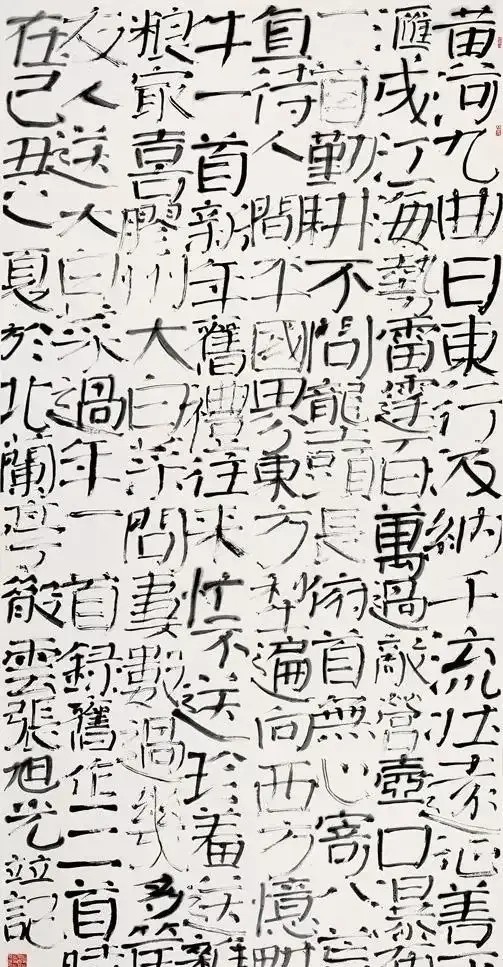 黄河九曲日東行及納千流壮善
匯成江海勢雷霆百萬過敵營壺口瀑布
一首勤耕不問龍頭長俯首無心寄
直待人間平國界東方犁遍向西方憶
牛一首新年舊禮往来忙不送珍羞送新
粮最喜膠州大白菜問妻數過幾多筐
友人送大白菜過年一首録舊作三首時
在己丑之夏於北蘭亭散雲張旭光並記